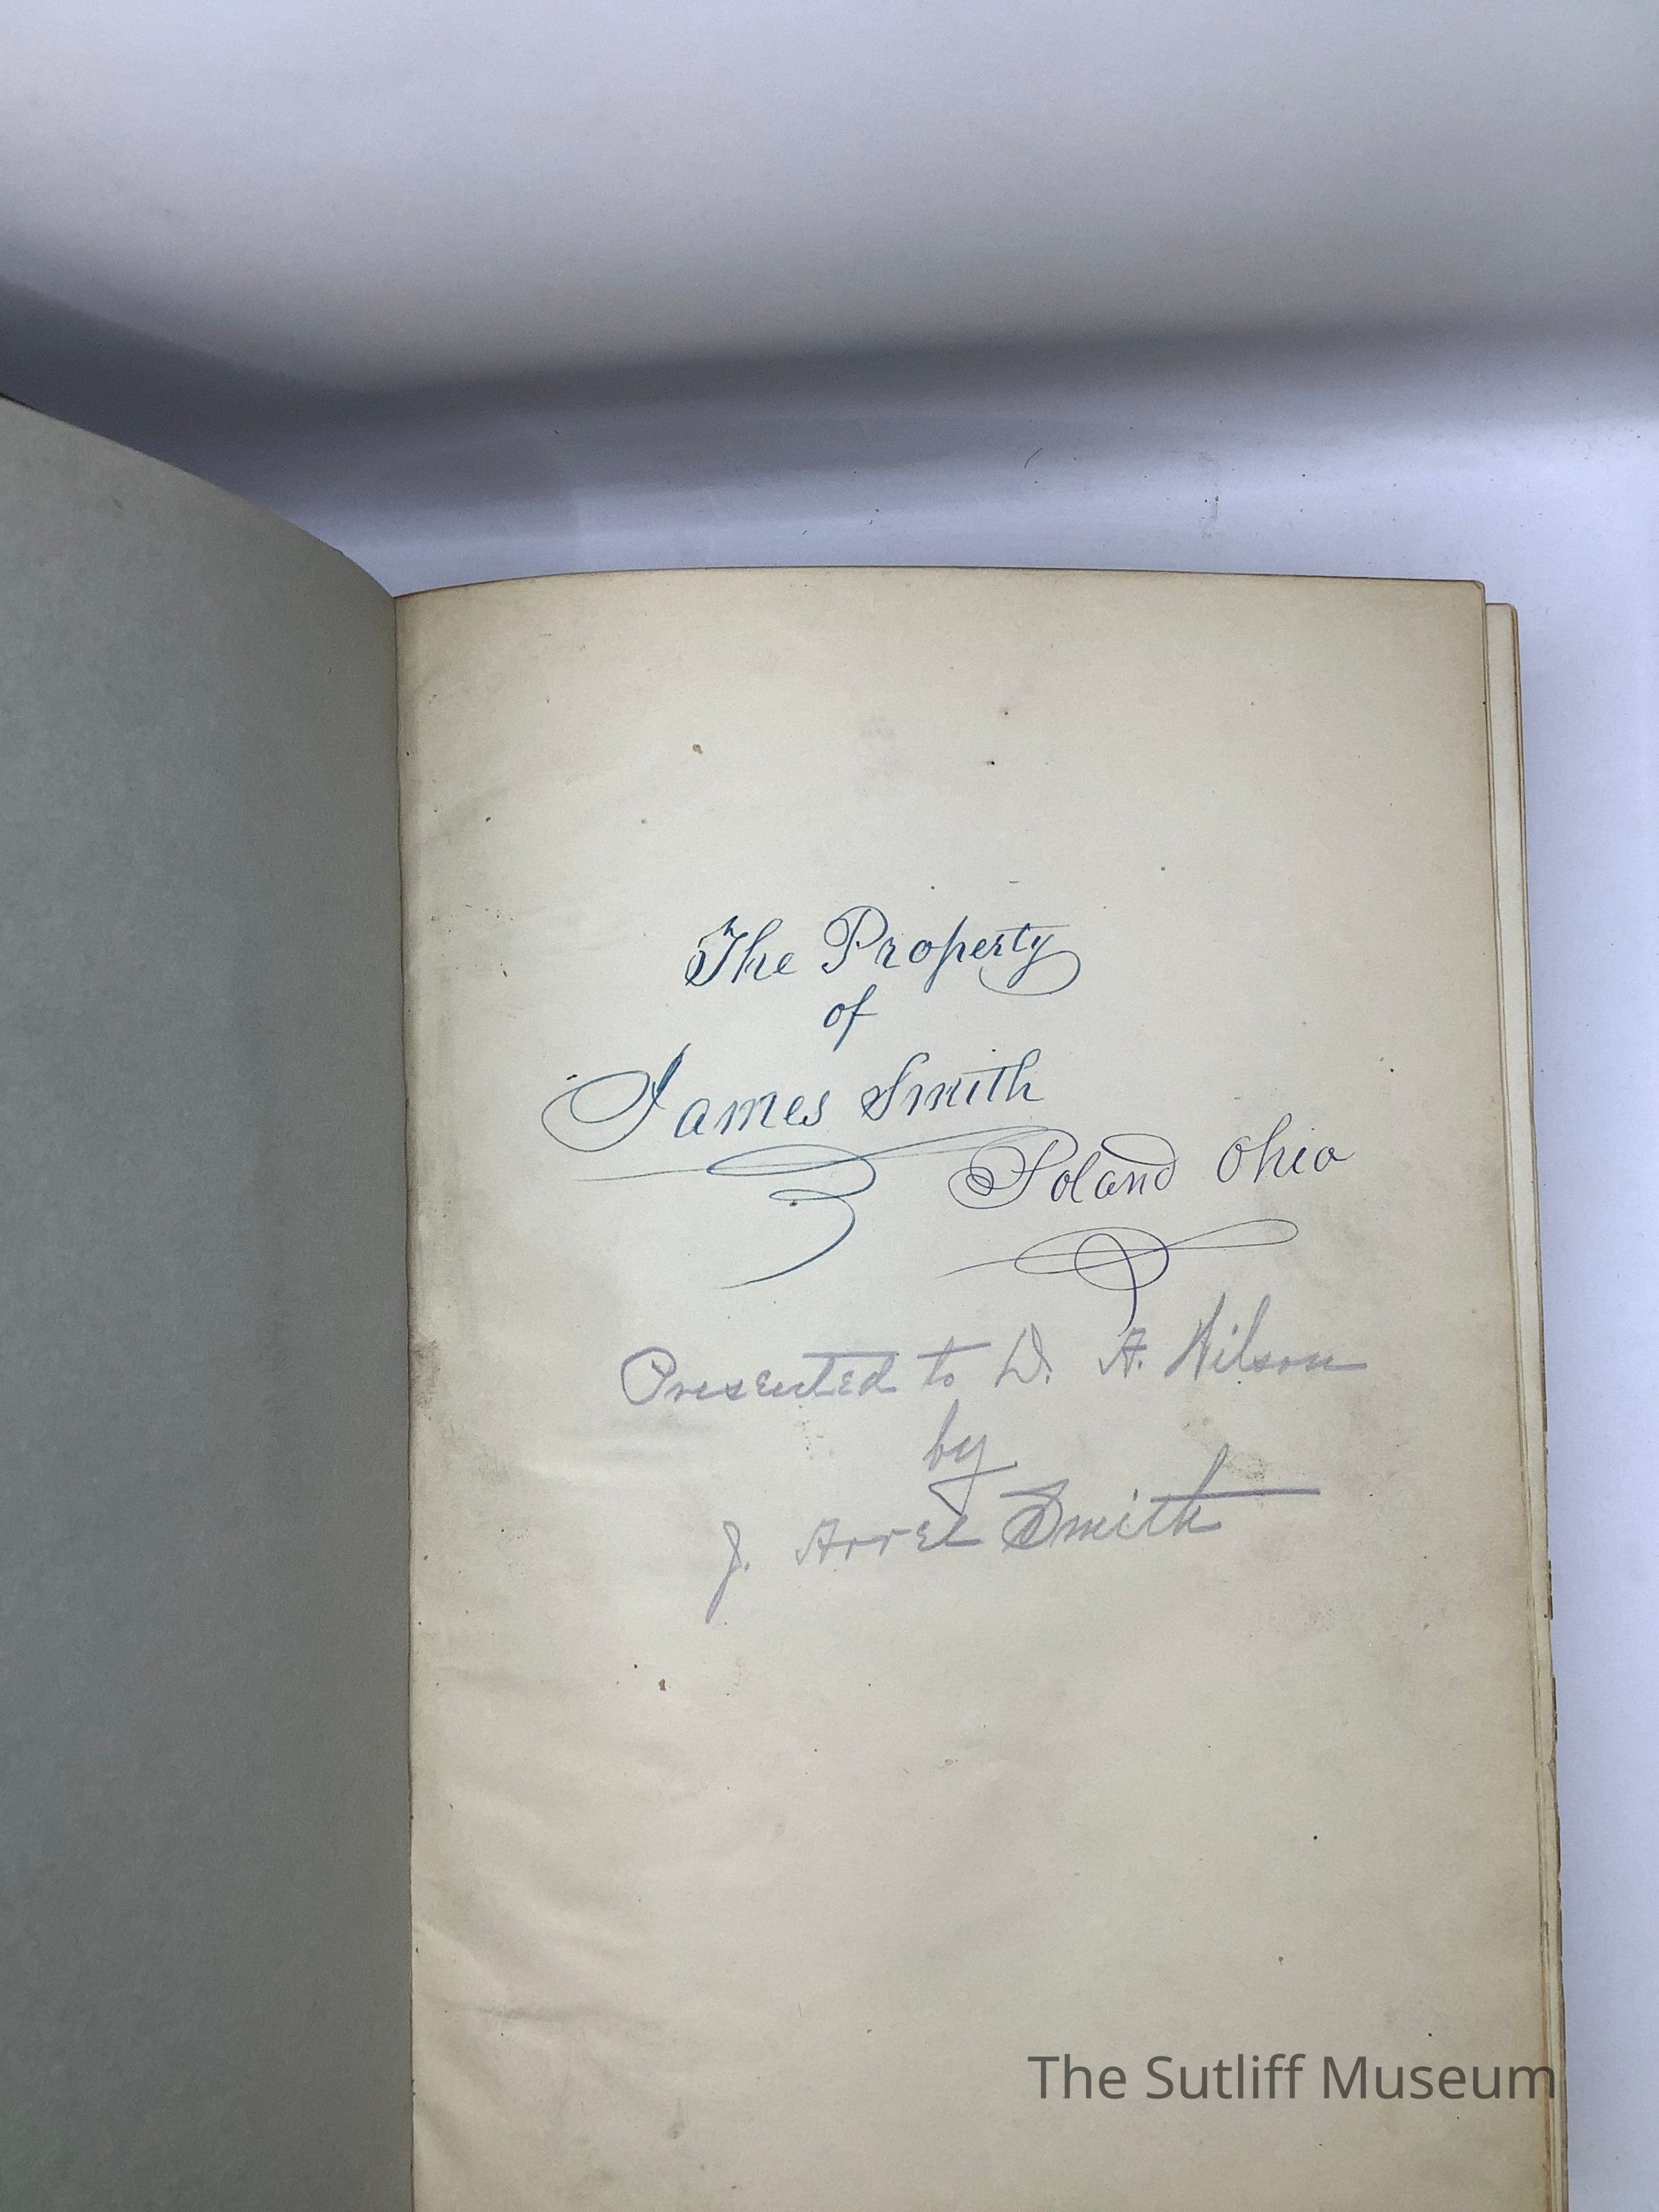 The Property
of
James Smith
Poland Ohio
Presented to D. A. Wilson
by
J. Arrel Smith
The Sutliff Museum